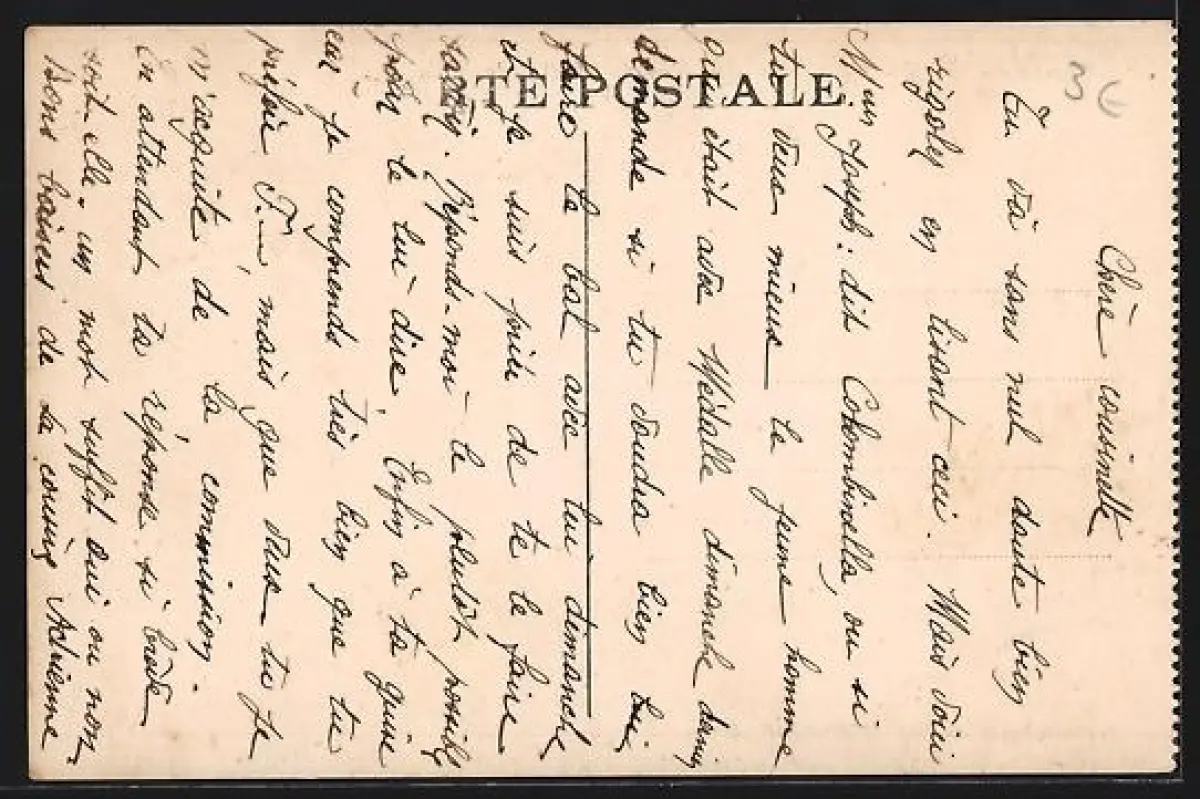 3 €
CARTE POSTALE
Chère cousinette
Tu va sans nul doute bien
rigoler en lisant ceci. Mais voici
Mr Joseph: dit Colombinella, ou si
tu veux mieux le jeune homme
qui était avec Médalle dimanche dernier
demande si tu voudra bien lui
faire le bal avec lui dimanche
et je suis priée de te le faire
savoir. Réponds-moi le plutôt possible
pour le lui dire, Enfin à ta guise
car je comprends très bien que tu
préfère F. mais que veux tu je
m'acquitte de la commission.
En attendant ta réponse si brève
soit-elle, un mot suffit oui ou non
Bons baisers de ta cousine Adrienne